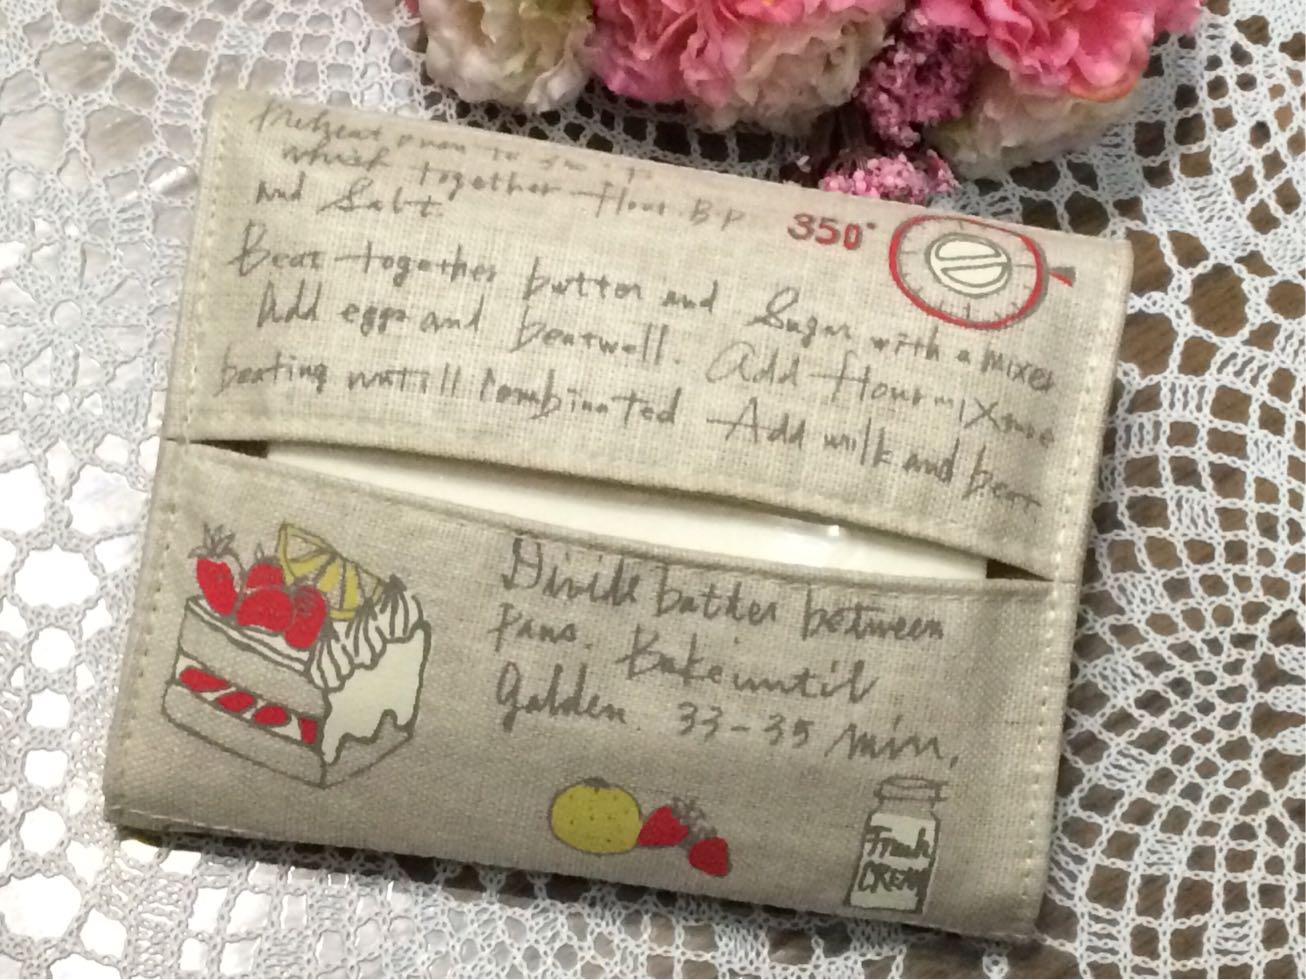 Preheat
whisk together flour B.P
and Salt.
350°
Beat together butter and Sugar with a mixer
Add eggs and beatwell. Add flour mixture
beating untill combinated Add milk and beat
Divide batter between
Pans. Bake until
Golden 33-35 min.
Fresh
CREAM